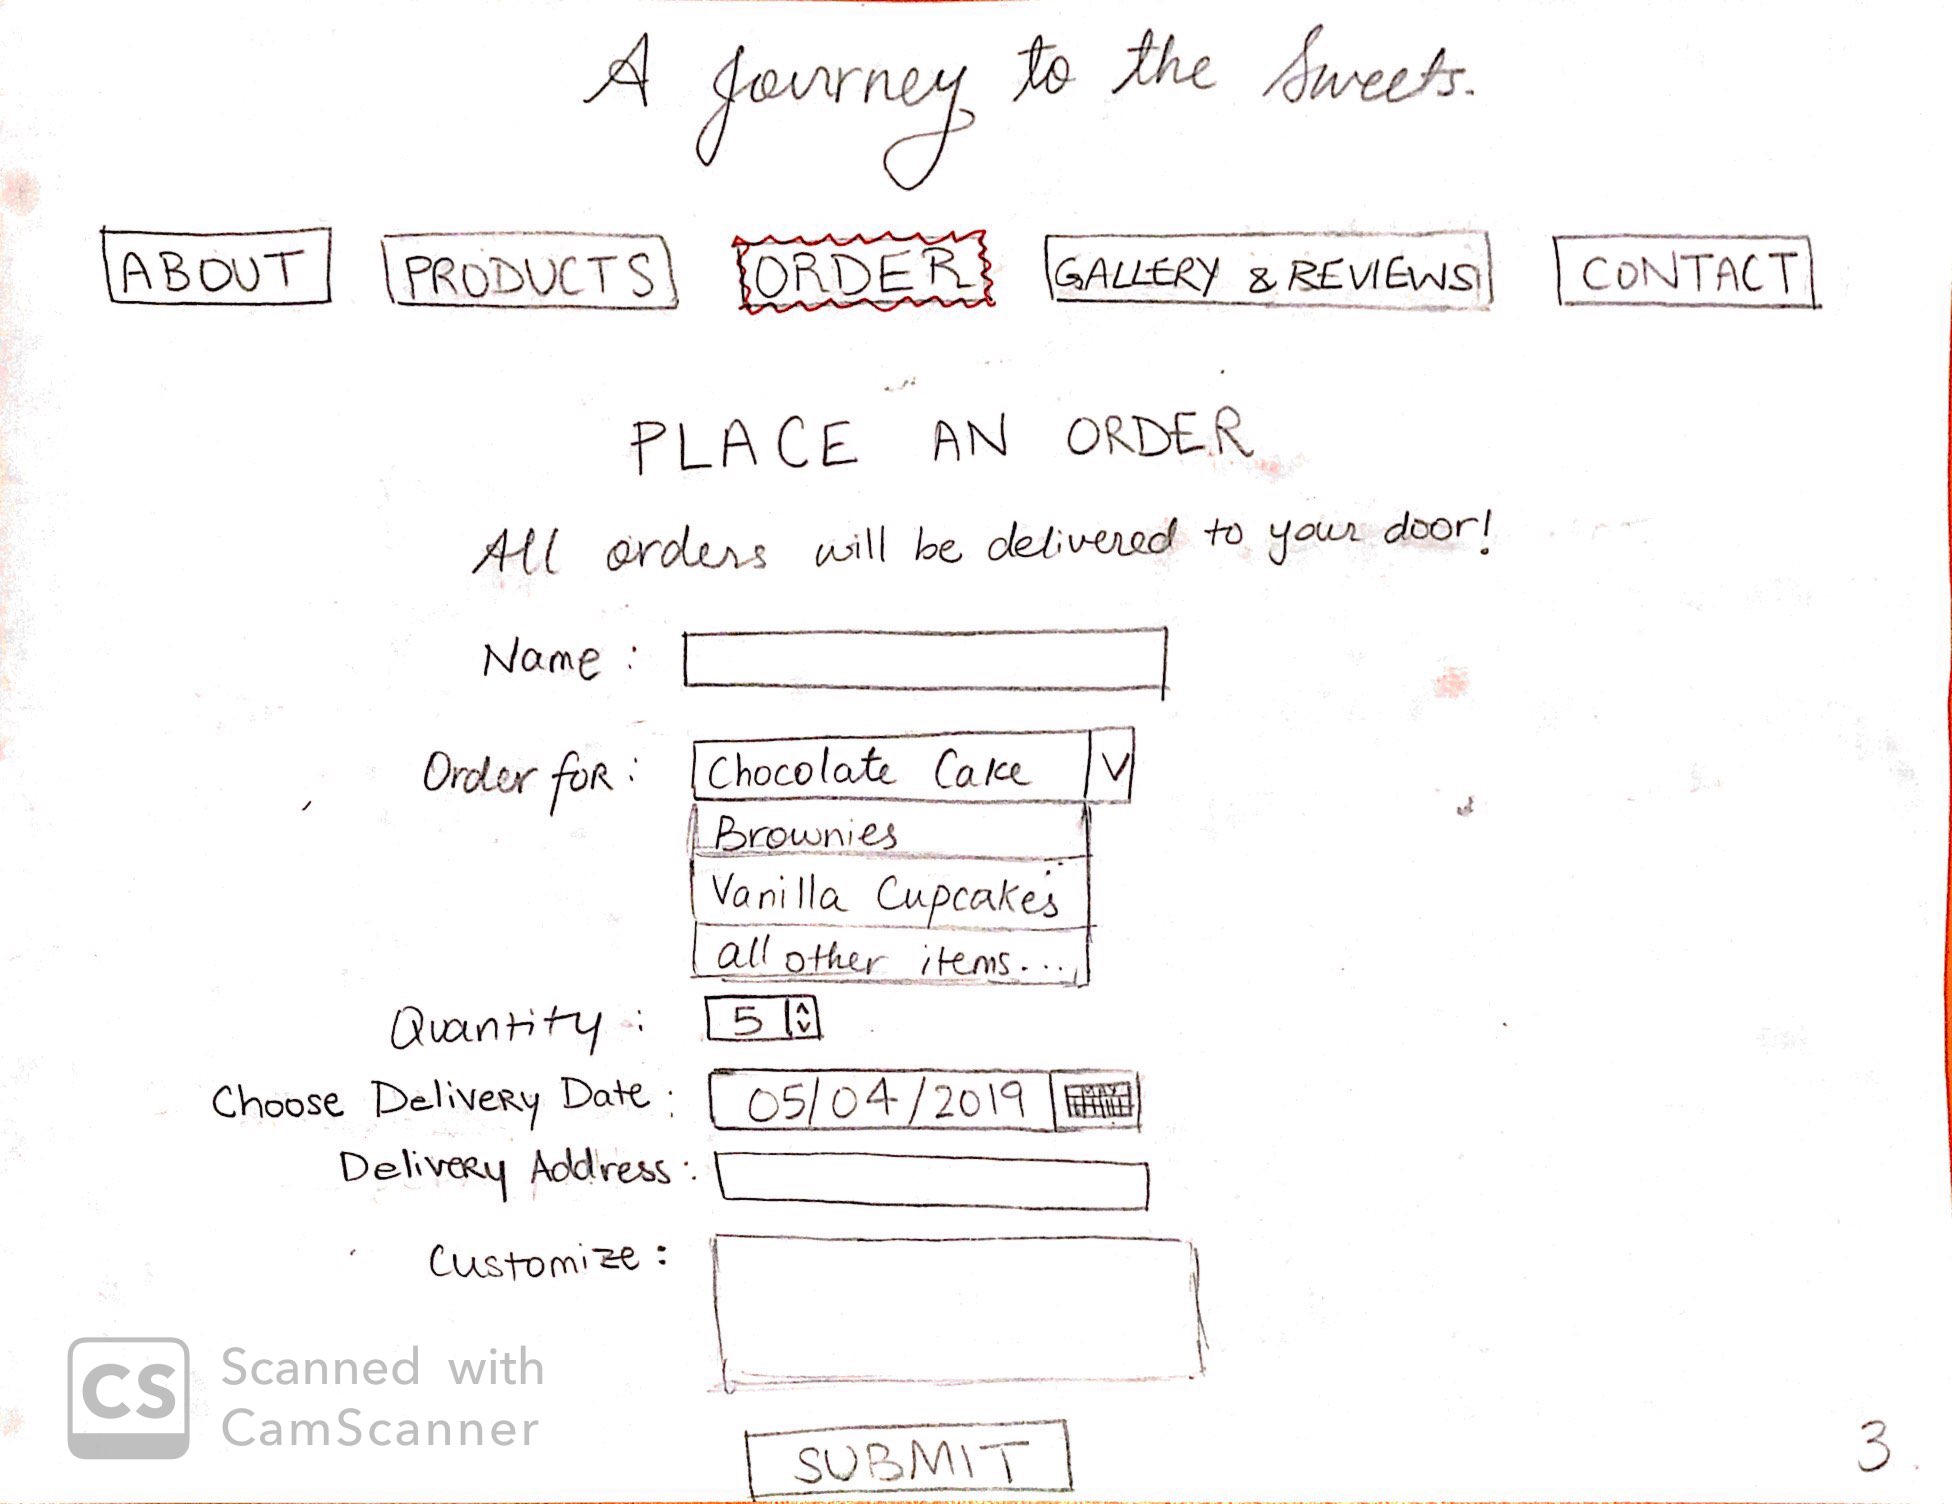 A Journey to the Sweets.
ABOUT PRODUCTS ORDER GALLERY & REVIEWS CONTACT
PLACE AN ORDER
All orders will be delivered to your door!
Name :
Order for : Chocolate Cake V
Brownies
Vanilla Cupcakes
all other items....
Quantity : 5
Choose Delivery Date : 05/04/2019
Delivery Address :
Customize :
SUBMIT
CS Scanned with
CamScanner
3